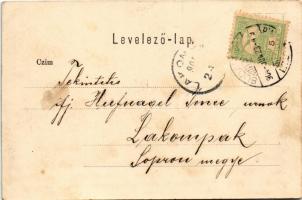 Levelező-lap.
Czim
Tekintetes
ifj. Hirfnagel Imre urnak
Lakompak
Sopron megye.